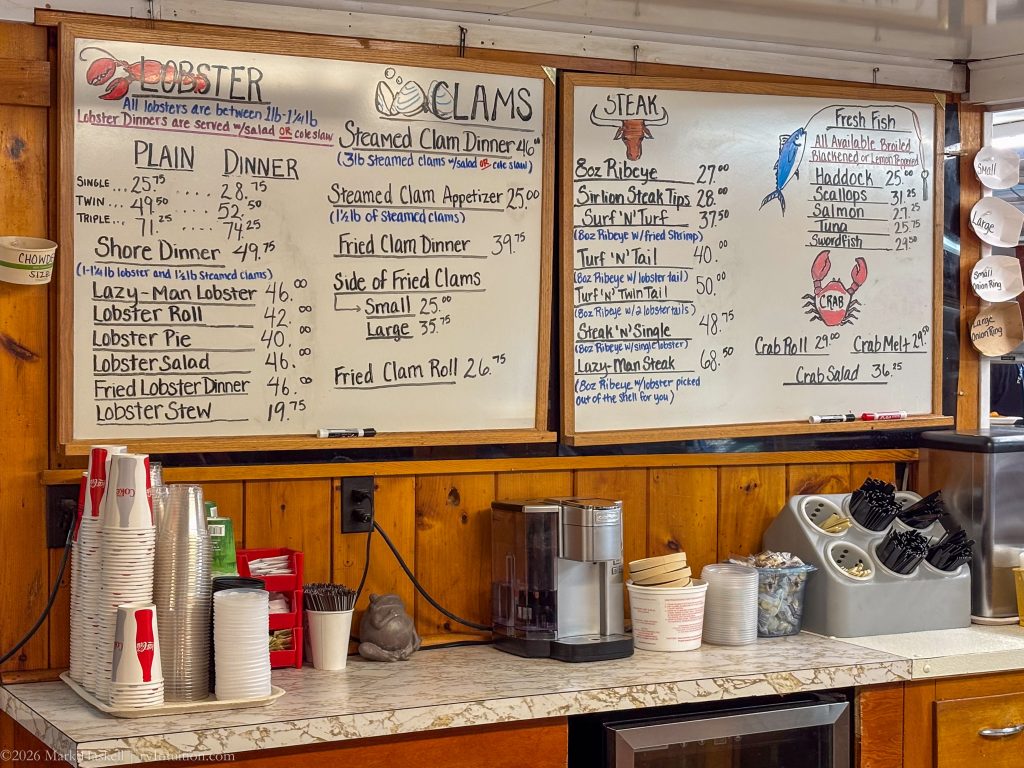 LOBSTER
All lobsters are between 1lb-1¼lb
Lobster Dinners are served w/salad OR cole slaw
PLAIN DINNER
SINGLE... 25.75 ..... 28.75
TWIN... 49.50 ..... 52.50
TRIPLE... 71.25 ..... 74.25
Shore Dinner 49.75
(1-1¼lb lobster and 1½lb Steamed clams)
Lazy-Man Lobster 46.00
Lobster Roll 42.00
Lobster Pie 40.00
Lobster Salad 46.00
Fried Lobster Dinner 46.00
Lobster Stew 19.75
CLAMS
Steamed Clam Dinner 46.00
(3lb Steamed clams w/salad OR cole slaw)
Steamed Clam Appetizer 25.00
(1½lb of Steamed clams)
Fried Clam Dinner 39.75
Side of Fried Clams
Small 25.00
Large 35.75
Fried Clam Roll 26.75
STEAK
8oz Ribeye 27.00
Sirlion Steak Tips 28.00
Surf 'N' Turf 37.50
(8oz Ribeye w/fried Shrimp)
Turf 'N' Tail 40.00
(8oz Ribeye w/lobster tail)
Turf 'n' Twin Tail 50.00
(8oz Ribeye w/2 lobster tails)
Steak 'N' Single 48.75
(8oz Ribeye w/single lobster)
Lazy-Man Steak 68.50
(8oz Ribeye w/lobster picked
out of the shell for you)
Fresh Fish
All Available Broiled,
Blackened or Lemon Peppered
Haddock 25.00
Scallops 31.25
Salmon 27.25
Tuna 25.75
Swordfish 29.50
CRAB
Crab Roll 29.00 Crab Melt 29.50
Crab Salad 36.25
CHOWDER
SIZE
Small
Large
Small
Onion Ring
Large
Onion Ring
Coke
©2026 Mark Haskell